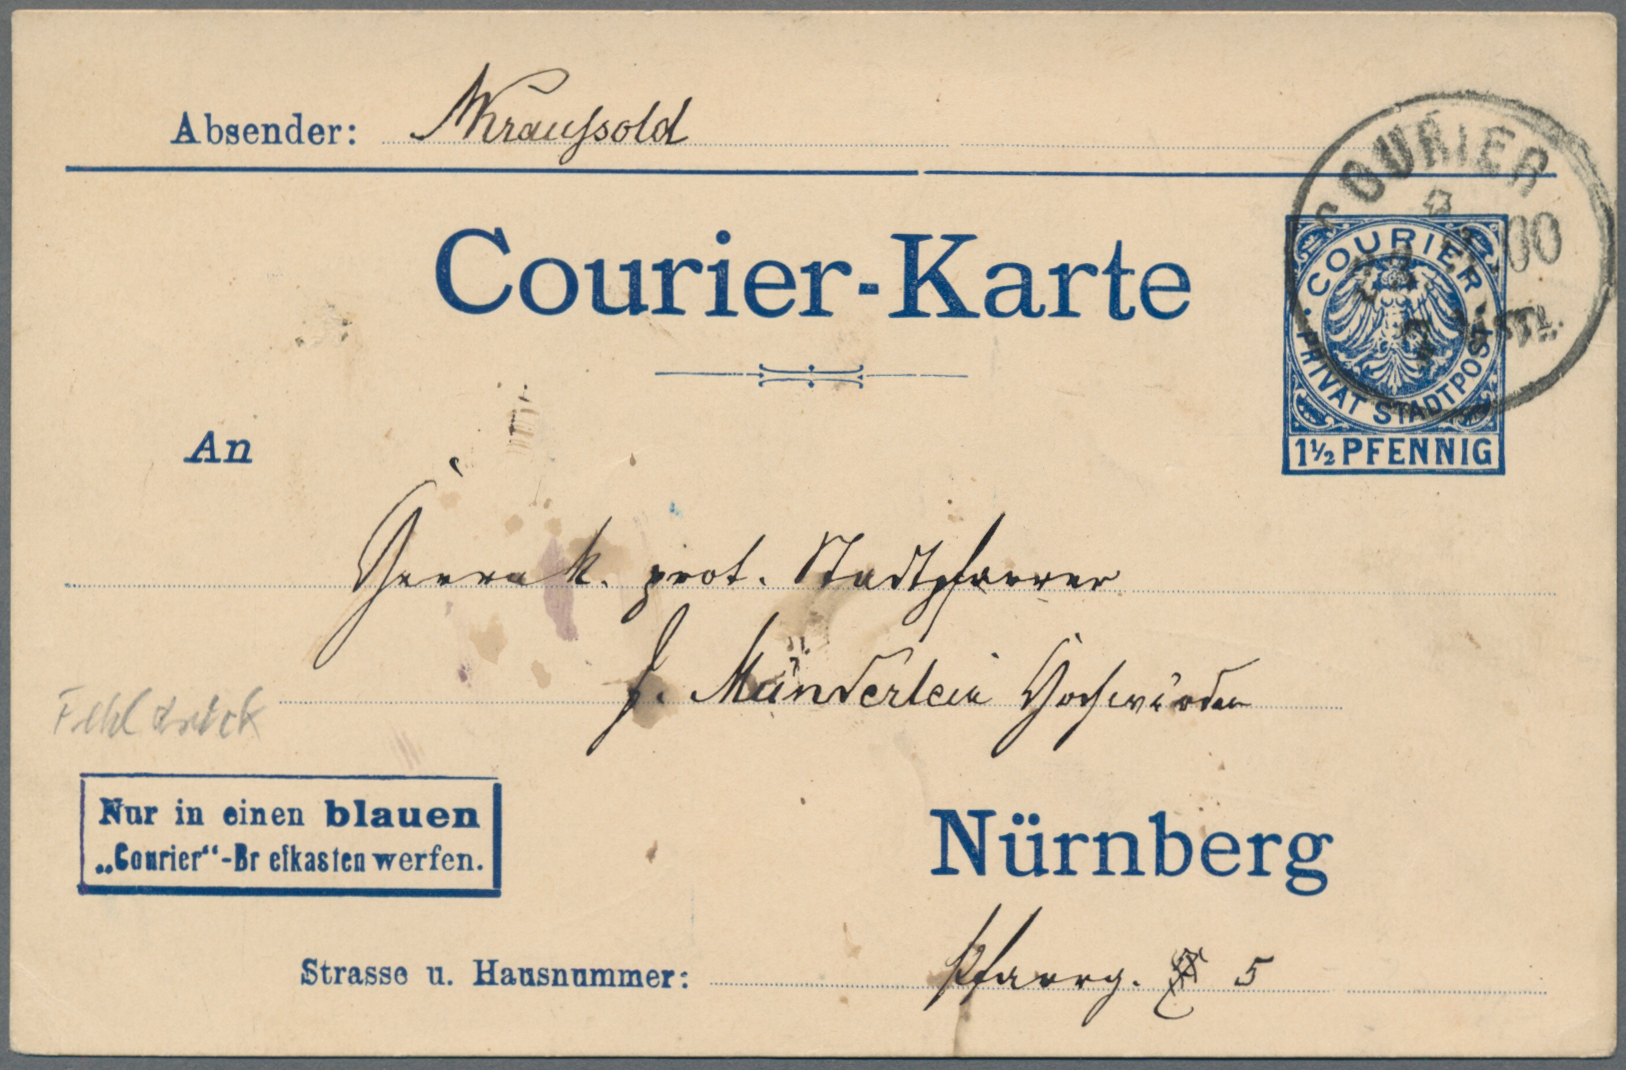 Absender: Kraussold
Courier-Karte
COURIER
00
COURIER
PRIVAT STADTPOST
1½ PFENNIG
An
Herrn k. prot. Stadtpfarrer
H. Münderlein Hochwürden
Fehldruck
Nur in einen blauen
„Courier“-Br efkasten werfen.
Nürnberg
Strasse u. Hausnummer: Pfarrg. 5